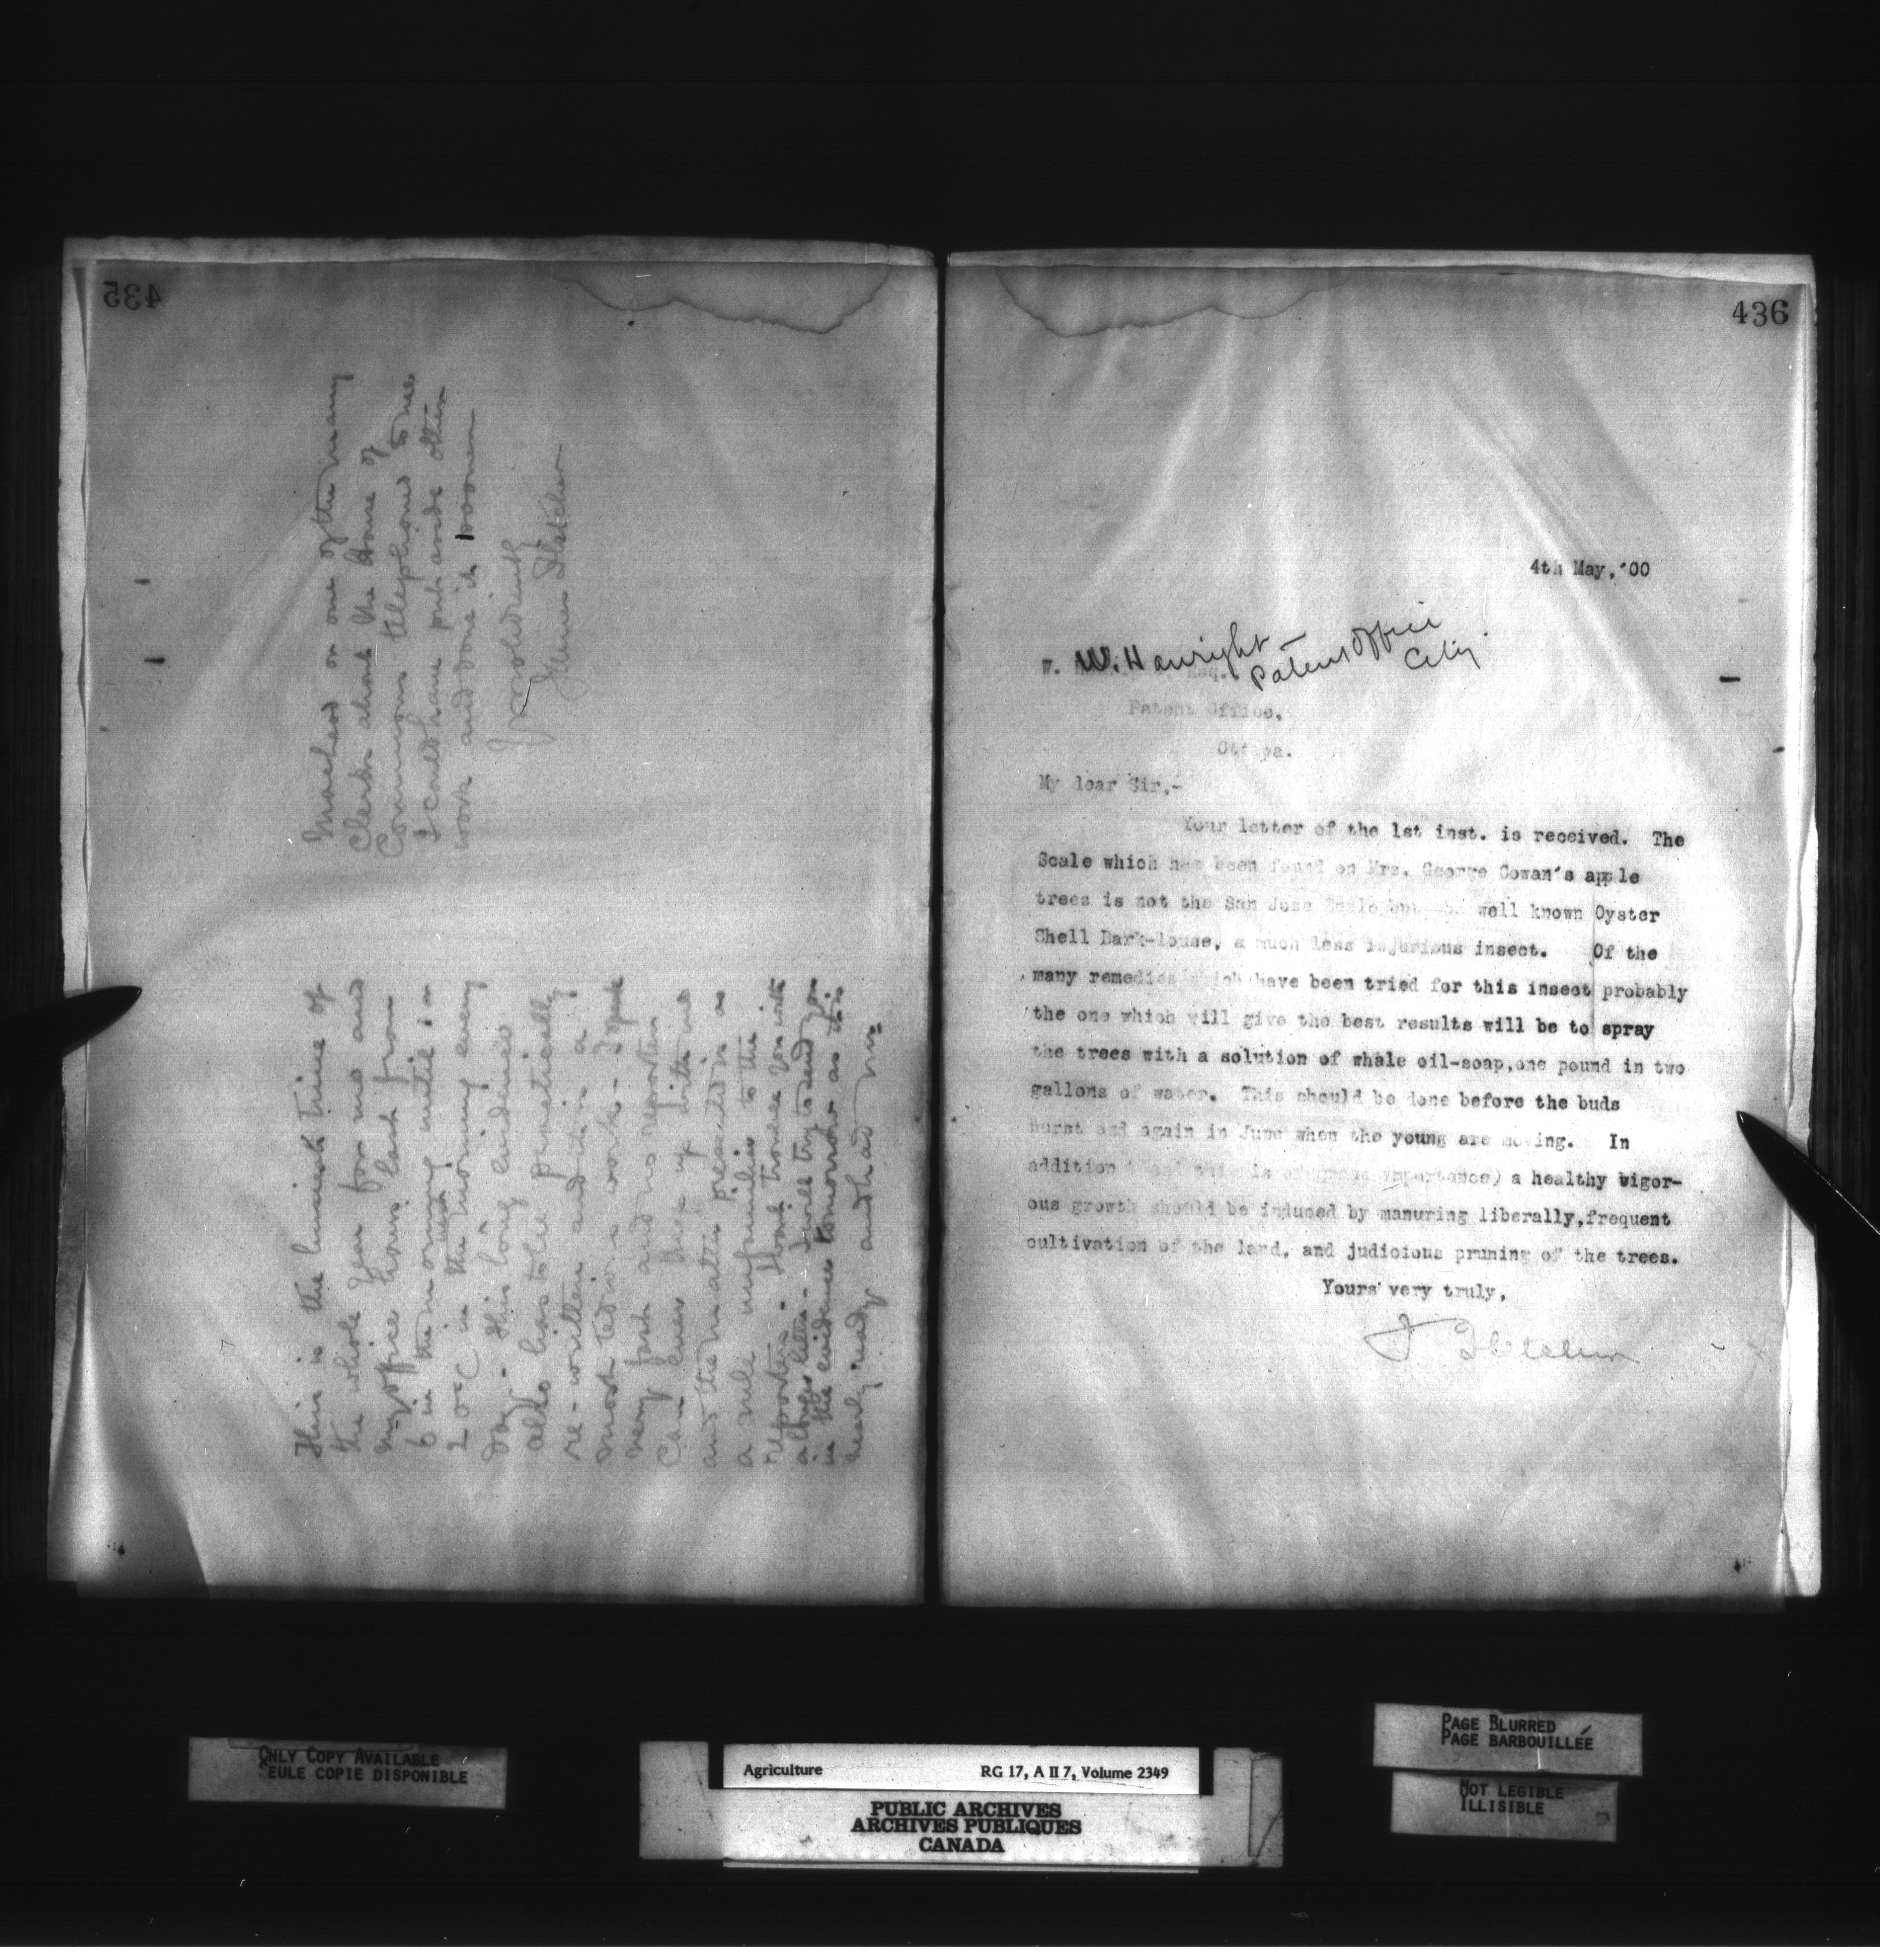 435
This is the busiest time of
the whole year for me and
my office hours last from
6 in the morning until 1 or
2 o'c in the next morning every
day - This long evidence
also has to be practically
re-written and it is a
most tedious work - I speak
very fast and no reporter
can ever keep up with me
and the matter presented is as
a rule unfamiliar to the
reporters - I will try to send you
in the evidence tomorrow as it is
nearly ready and had
Macleod or one of the many
Clerks about the House of
Commons telephoned to me
I could have put aside other
work and done it sooner
Yours truly
James Fletcher
436
4th May, '00
W. W. Hawright
Patent Office
City
Esq.
Patent Office.
Ottawa.
My dear Sir,-
Your letter of the 1st inst. is received. The
Scale which has been found on Mrs. George Cowan's apple
trees is not the San Jose Scale but the well known Oyster
Shell Bark-louse, a much less injurious insect. Of the
many remedies which have been tried for this insect probably
the one which will give the best results will be to spray
the trees with a solution of whale oil-soap, one pound in two
gallons of water. This should be done before the buds
burst and again in June when the young are moving. In
addition this is of importance) a healthy vigor-
ous growth should be induced by manuring liberally, frequent
cultivation of the land, and judicious pruning of the trees.
Yours very truly,
J Fletcher
ONLY COPY AVAILABLE
SEULE COPIE DISPONIBLE
Agriculture RG 17, A II 7, Volume 2349
PUBLIC ARCHIVES
ARCHIVES PUBLIQUES
CANADA
PAGE BLURRED
PAGE BARBOUILLÉE
NOT LEGIBLE
ILLISIBLE